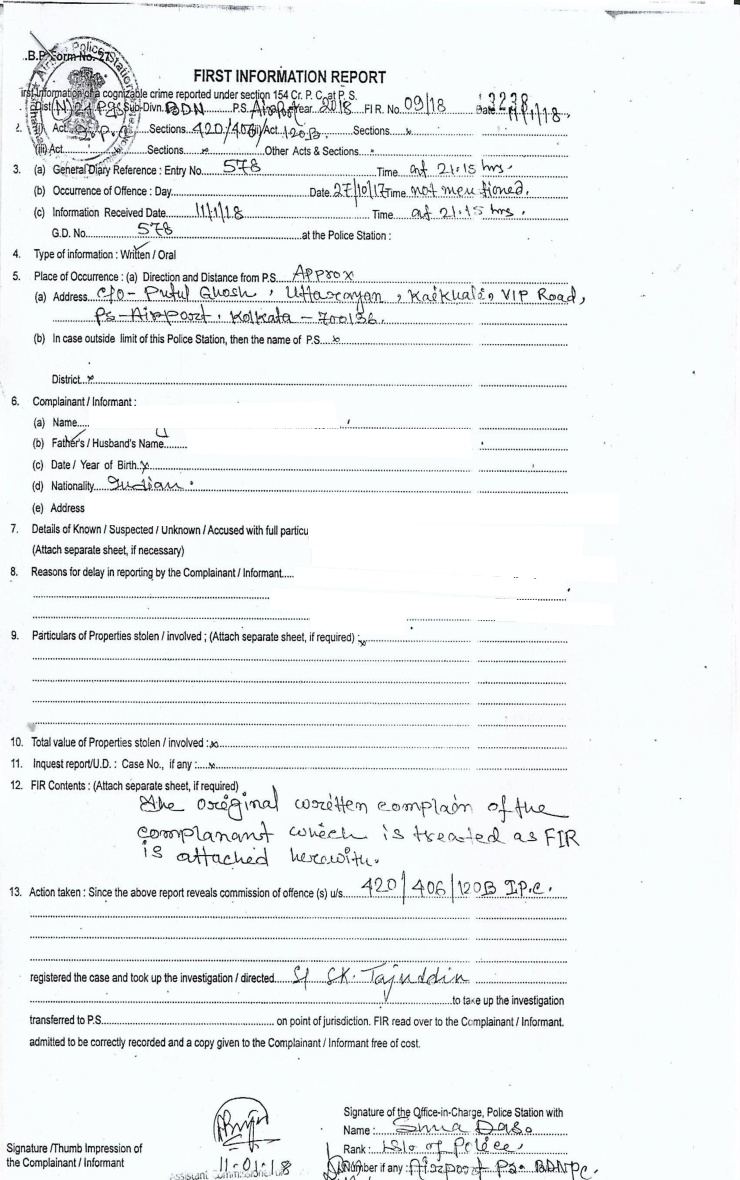 B.P. Form No. 27
FIRST INFORMATION REPORT
First Information of a cognizable crime reported under section 154 Cr. P. C. at P. S.
Dist (N) 24 Pgs Sub-Divn. BDN P.S. Airport Year 2018 FIR. No. 09/18 Date 11/1/18
3238
2. (i) Act I.P.C Sections 420/406 (ii) Act 120B Sections x
(iii) Act Sections x Other Acts & Sections x
3. (a) General Diary Reference : Entry No. 578 Time at 21:15 hrs.
(b) Occurrence of Offence : Day Date 27/10/17 Time not mentioned.
(c) Information Received Date 11/1/18 Time at 21:15 hrs.
G.D. No. 578 at the Police Station :
4. Type of information : Written / Oral
5. Place of Occurrence : (a) Direction and Distance from P.S. Approx
(a) Address C/o- Putul Ghosh, Uttarayan, Kaikhali, VIP Road,
Ps-Airport, Kolkata - 700136.
(b) In case outside limit of this Police Station, then the name of P.S. x
District x
6. Complainant / Informant :
(a) Name
(b) Father's / Husband's Name
(c) Date / Year of Birth x
(d) Nationality Indian
(e) Address
7. Details of Known / Suspected / Unknown / Accused with full particu
(Attach separate sheet, if necessary)
8. Reasons for delay in reporting by the Complainant / Informant
9. Particulars of Properties stolen / involved ; (Attach separate sheet, if required) : x
10. Total value of Properties stolen / involved : x
11. Inquest report/U.D. : Case No., if any : x
12. FIR Contents : (Attach separate sheet, if required)
The original written complain of the
complanant which is treated as FIR
is attached herewith.
13. Action taken : Since the above report reveals commission of offence (s) u/s 420/406/120B I.P.C.
registered the case and took up the investigation / directed SI SK. Tajuddin
to take up the investigation
transferred to P.S. on point of jurisdiction. FIR read over to the Complainant / Informant.
admitted to be correctly recorded and a copy given to the Complainant / Informant free of cost.
Signature of the Office-in-Charge, Police Station with
Name :
Rank : of Police,
Number if any : Airport Ps. BDNPC.
Signature /Thumb Impression of
the Complainant / Informant
11-01-18